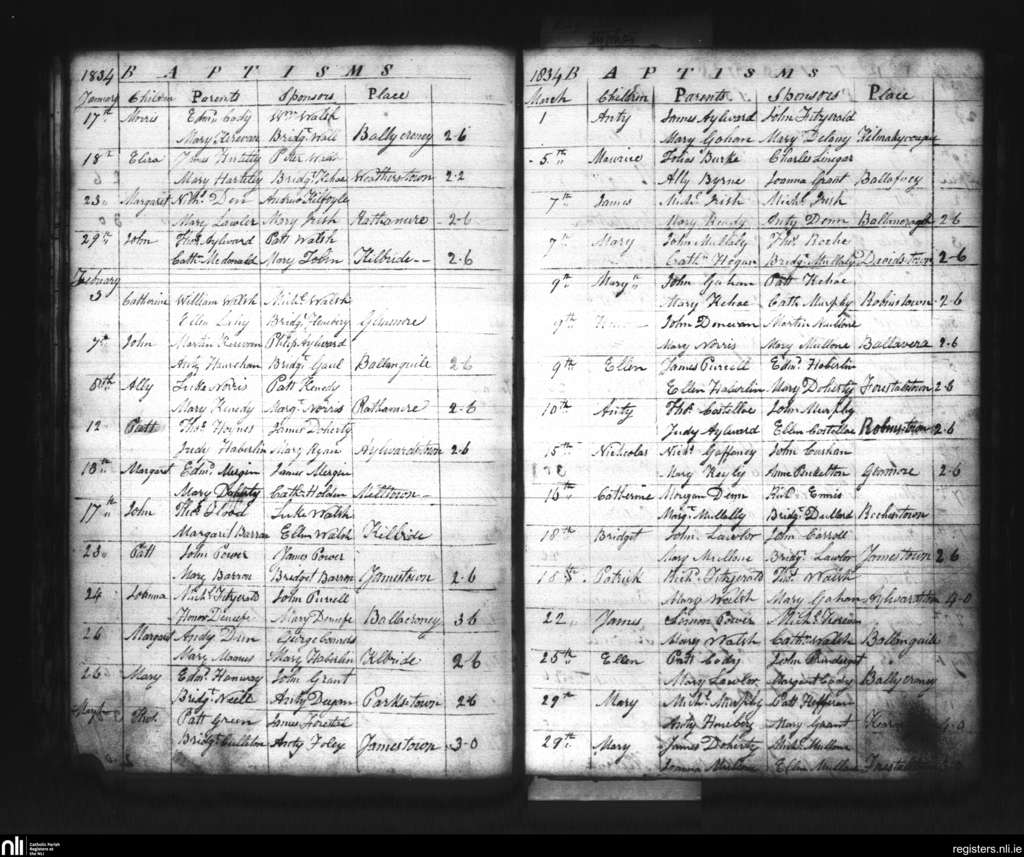 1834 BAPTISMS
January Children Parents Sponsors Place
17th Morris Edmd Cody Wm Walsh
Mary Kerevan Bridgt Wall Ballycroney 2-6
18th Eliza James Hartley Peter Wade
Mary Hartley Bridgt Kehoe Weatherstown 2-2
23 Margaret Nichs Den Andrew Kilfoyle
Mary Lawler Mary Irish Rathamere 2-6
29th John Thos Aylward Patt Walsh
Cathn Mcdonald Mary Tobin Kilbride 2-6
February
3 Catherine William Walsh Michl Walsh
Ellen Bridgt Glenmore
7th John Martin Kerwan Philip Aylward
Anty Hanrahan Bridgt Gaul Ballanguile 2-6
8th Ally Luke Norris Patt Kenedy
Mary Kenedy Margt Norris Rathamere 2-6
12 Patt Thos Hoynes James Doherty
Judy Haberlin Mary Ryan Aylwardstown 2-6
18th Margaret Edmd Mergin James Mergin
Mary Doherty Cath Holden Milltown
17th John Thos Flood Luke Walsh
Margaret Barron Ellen Walsh Kilbride
23 Patt John Power James Power
Mary Barron Bridget Barron Jamestown 2-6
24 Joanna Michl Fitzgerald John Purcell
Honor Denieffe Mary Denieffe Ballacroney 3-6
26 Margaret Andy Dun George
Mary Manus Mary Haberlin Kilbride 2-6
26 Mary Edmd John Grant
Bridgt Neill Anty Parkstown 2-6
Thos Patt Green James Forestal
Bridgt Culleton Anty Foley Jamestown 3-0
1834 BAPTISMS
March Children Parents Sponsors Place
1 Anty James Aylward John Fitzgerald
Mary Gahan Mary Delany
5th Maurice Tobias Burke Charles Linegar
Ally Byrne Joanna Grant Ballafacy
7th James Michl Irish Michl Irish
Mary Ready Judy Denn 2-6
7th Mary John Mullaly Thos Roche
Cathn Hogan Bridgt Mullaly Davidstown 2-6
9th Mary John Gahan Patt Kehoe
Mary Kehoe Cath Murphy Robinstown 2-6
9th John Donevan Martin Mullone
Mary Norris Mary Mullone Ballavera 2-6
9th Ellen James Purcell Edmd Haberlin
Ellen Haberlin Mary Doherty Forestalstown 2-6
10th Anty Thos Costelloe John Murphy
Judy Aylward Ellen Costelloe Robinstown 2-6
15th Nicholas Nichs Gaffeney John Cushan
Mary Anne Glenmore 2-6
16th Catherine Morgan Denn Richd Ennis
Margt Mullally Bridgt Dullard Rochestown
18th Bridget John Lawlor John Carroll
Mary Mullone Bridgt Lawlor Jamestown 2-6
18th Patrick Richd Fitzgerald Thos Walsh
Mary Walsh Mary Gahan 4-0
22 James Simon Power Michl
Mary Walsh Cathn Walsh Ballanguile
25th Ellen Patt Cody John
Mary Lawlor Margaret Cody Ballycroney
29th Mary Michl Murphy Patt Heffernan
Anty Mary Grant 4-0
29th Mary James Doherty Michl Mullone
Joanna Mullone Ellen Mullone
nli
Catholic Parish
Registers at
the NLI
registers.nli.ie